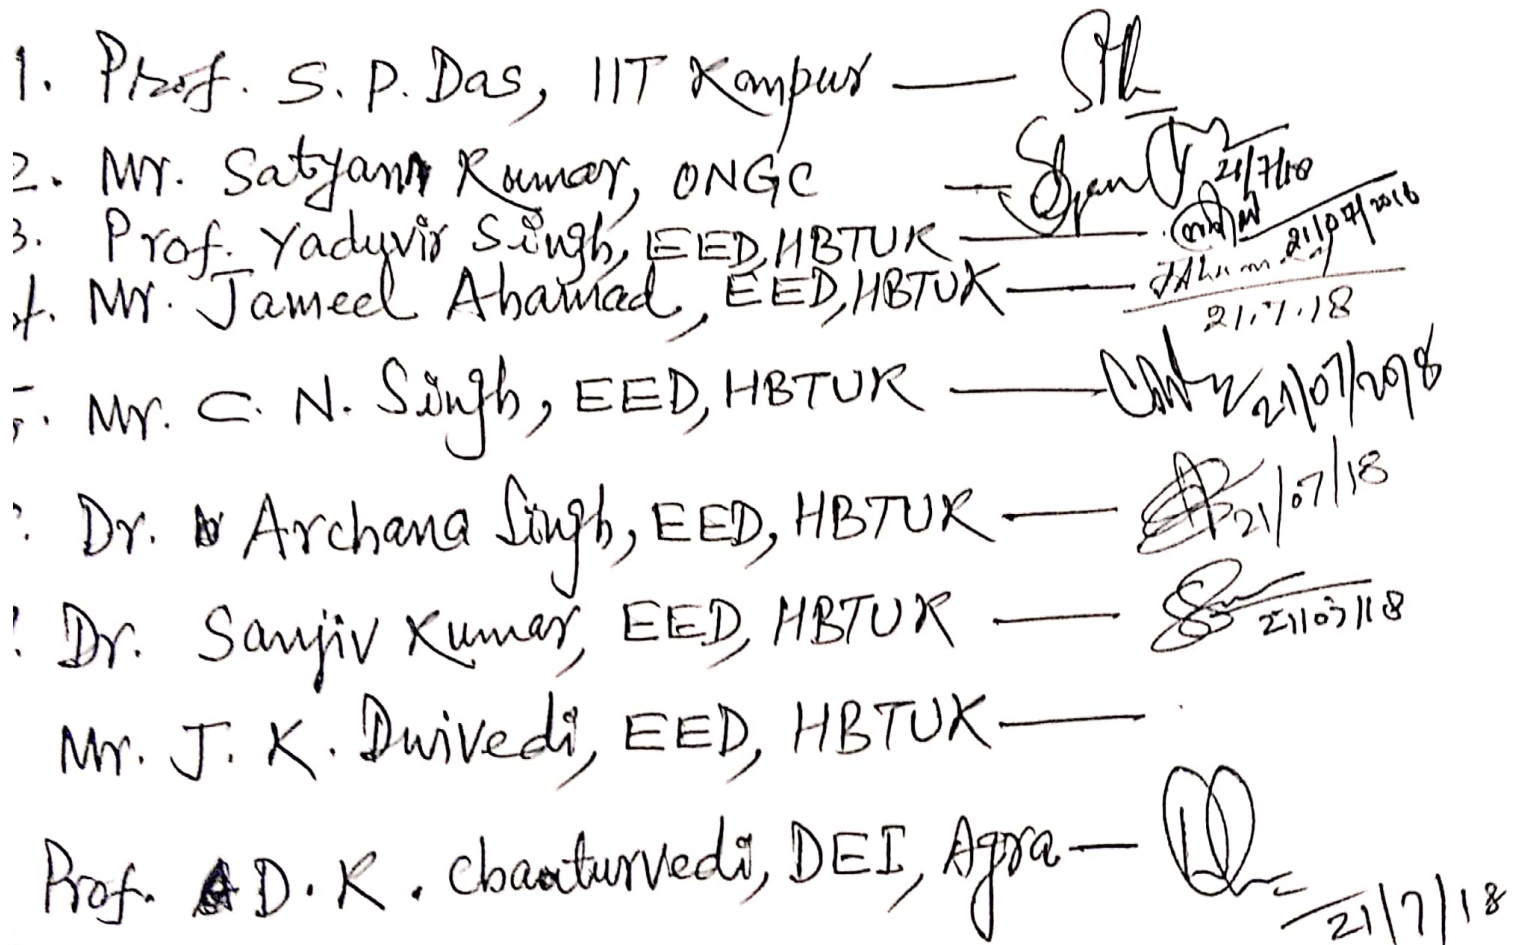 1. Prof. S. P. Das, IIT Kanpur —
2. Mr. Satyam Kumar, ONGC — 21/7/18
3. Prof. Yaduvir Singh, EED, HBTUK — 21/07/2018
4. Mr. Jameel Ahamad, EED, HBTUK — 21.7.18
5. Mr. C. N. Singh, EED, HBTUK — 21/07/2018
Dr. Archana Singh, EED, HBTUK — 21/07/18
Dr. Sanjiv Kumar, EED, HBTUK — 21/07/18
Mr. J. K. Dwivedi, EED, HBTUK —
Prof. D. K. Chaturvedi, DEI, Agra — 21/7/18